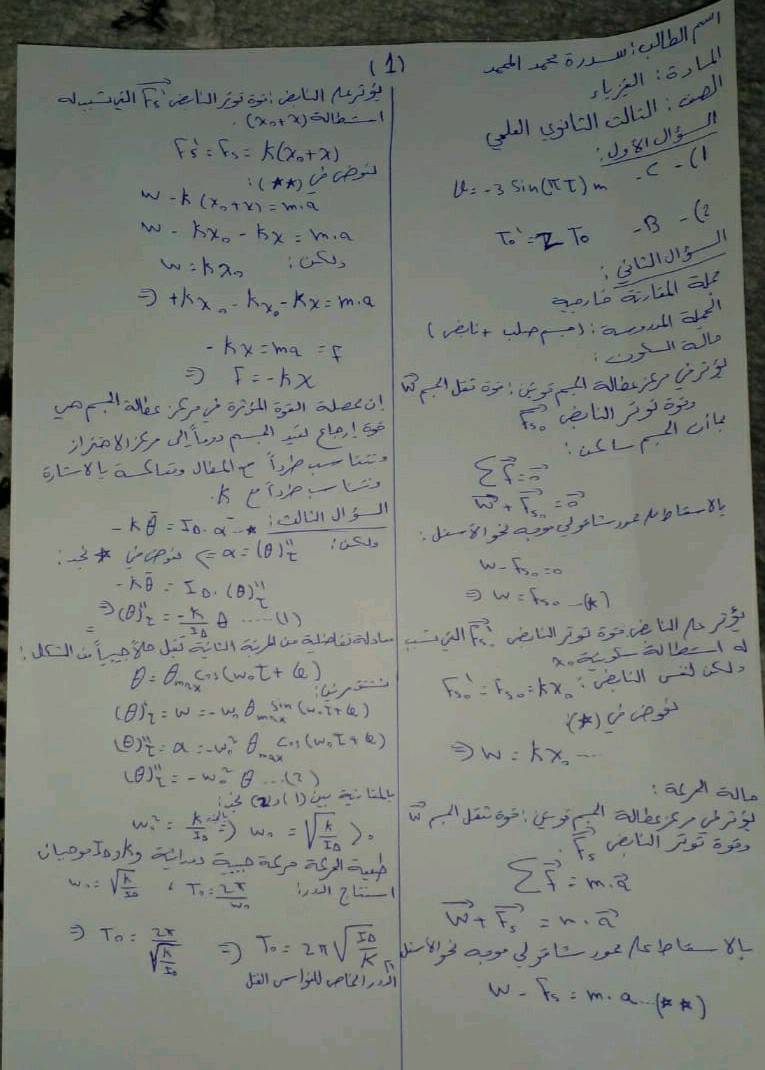 (1)
اسم الطالب: سدرة محمد المحمد
المادة: الفيزياء
الصف: الثالث الثانوي العلمي
السؤال الأول:
1) - C - v = -3 sin(πt) m
2) - B - T₀' = 2 T₀
السؤال الثاني:
جملة المقارنة خارجية
الجملة المدروسة: (جسم صلب + نابض)
حالة السكون:
يؤثر في مركز عطالة الجسم قوتين: قوة ثقل الجسم W
وقوة توتر النابض Fs₀
بما أن الجسم ساكن:
ΣF = 0
W + Fs₀ = 0
بالاسقاط على محور شاقولي موجه نحو الأسفل:
W - Fs₀ = 0
⇒ W = Fs₀ ...(*)
يؤثر على النابض قوة توتر النابض Fs₀' التي تسبب
له استطالة سكونية x₀
ولكن لنفس النابض: Fs₀' = Fs₀ = kx₀
نعوض في (*)
⇒ W = kx₀ ...
حالة الحركة:
يؤثر في مركز عطالة الجسم قوتين: قوة ثقل الجسم W
وقوة توتر النابض Fs
ΣF = m.a
W + Fs = m.a
بالاسقاط على محور شاقولي موجه نحو الأسفل
W - Fs = m.a ...(**)
يؤثر على النابض: قوة توتر النابض Fs' التي تسبب له
استطالة (x₀+x).
Fs' = Fs = k(x₀+x)
نعوض في (**):
W - k(x₀+x) = m.a
W - kx₀ - kx = m.a
ولكن: W = kx₀
⇒ +kx₀ - kx₀ - kx = m.a
- kx = ma = F
⇒ F = -kx
إن محصلة القوة المؤثرة في مركز عطالة الجسم هي
قوة إرجاع لتعيد الجسم دوماً إلى مركز الاهتزاز
وتتناسب طرداً مع المطال وتعاكسه بالاشارة
وتتناسب طرداً مع k.
السؤال الثالث: - kθ = IΔ.α ...*
ولكن: α = (θ)''t ⇐ نعوض في * نجد:
- kθ = IΔ.(θ)''t
⇒ (θ)''t = -k/IΔ θ ......(1)
معادلة تفاضلية من المرتبة الثانية تقبل حلاً جيبياً من الشكل:
θ = θmax cos(ω₀t+φ)
نشتق مرتين:
(θ)'t = ω = -ω₀ θmax sin(ω₀t+φ)
(θ)''t = α = -ω₀² θmax cos(ω₀t+φ)
(θ)''t = -ω₀² θ ...(2)
بالمقارنة بين (1) و(2) نجد:
ω₀² = k/IΔ ⇒ ω₀ = √(k/IΔ) > 0
طبيعة الحركة حركة جيبية دورانية و k و IΔ موجبان
استنتاج الدور: T₀ = 2π/ω₀ ، ω₀ = √(k/IΔ)
⇒ T₀ = 2π/√(k/IΔ) ⇒ T₀ = 2π√(IΔ/k)
الدور الخاص للنواس الفتل